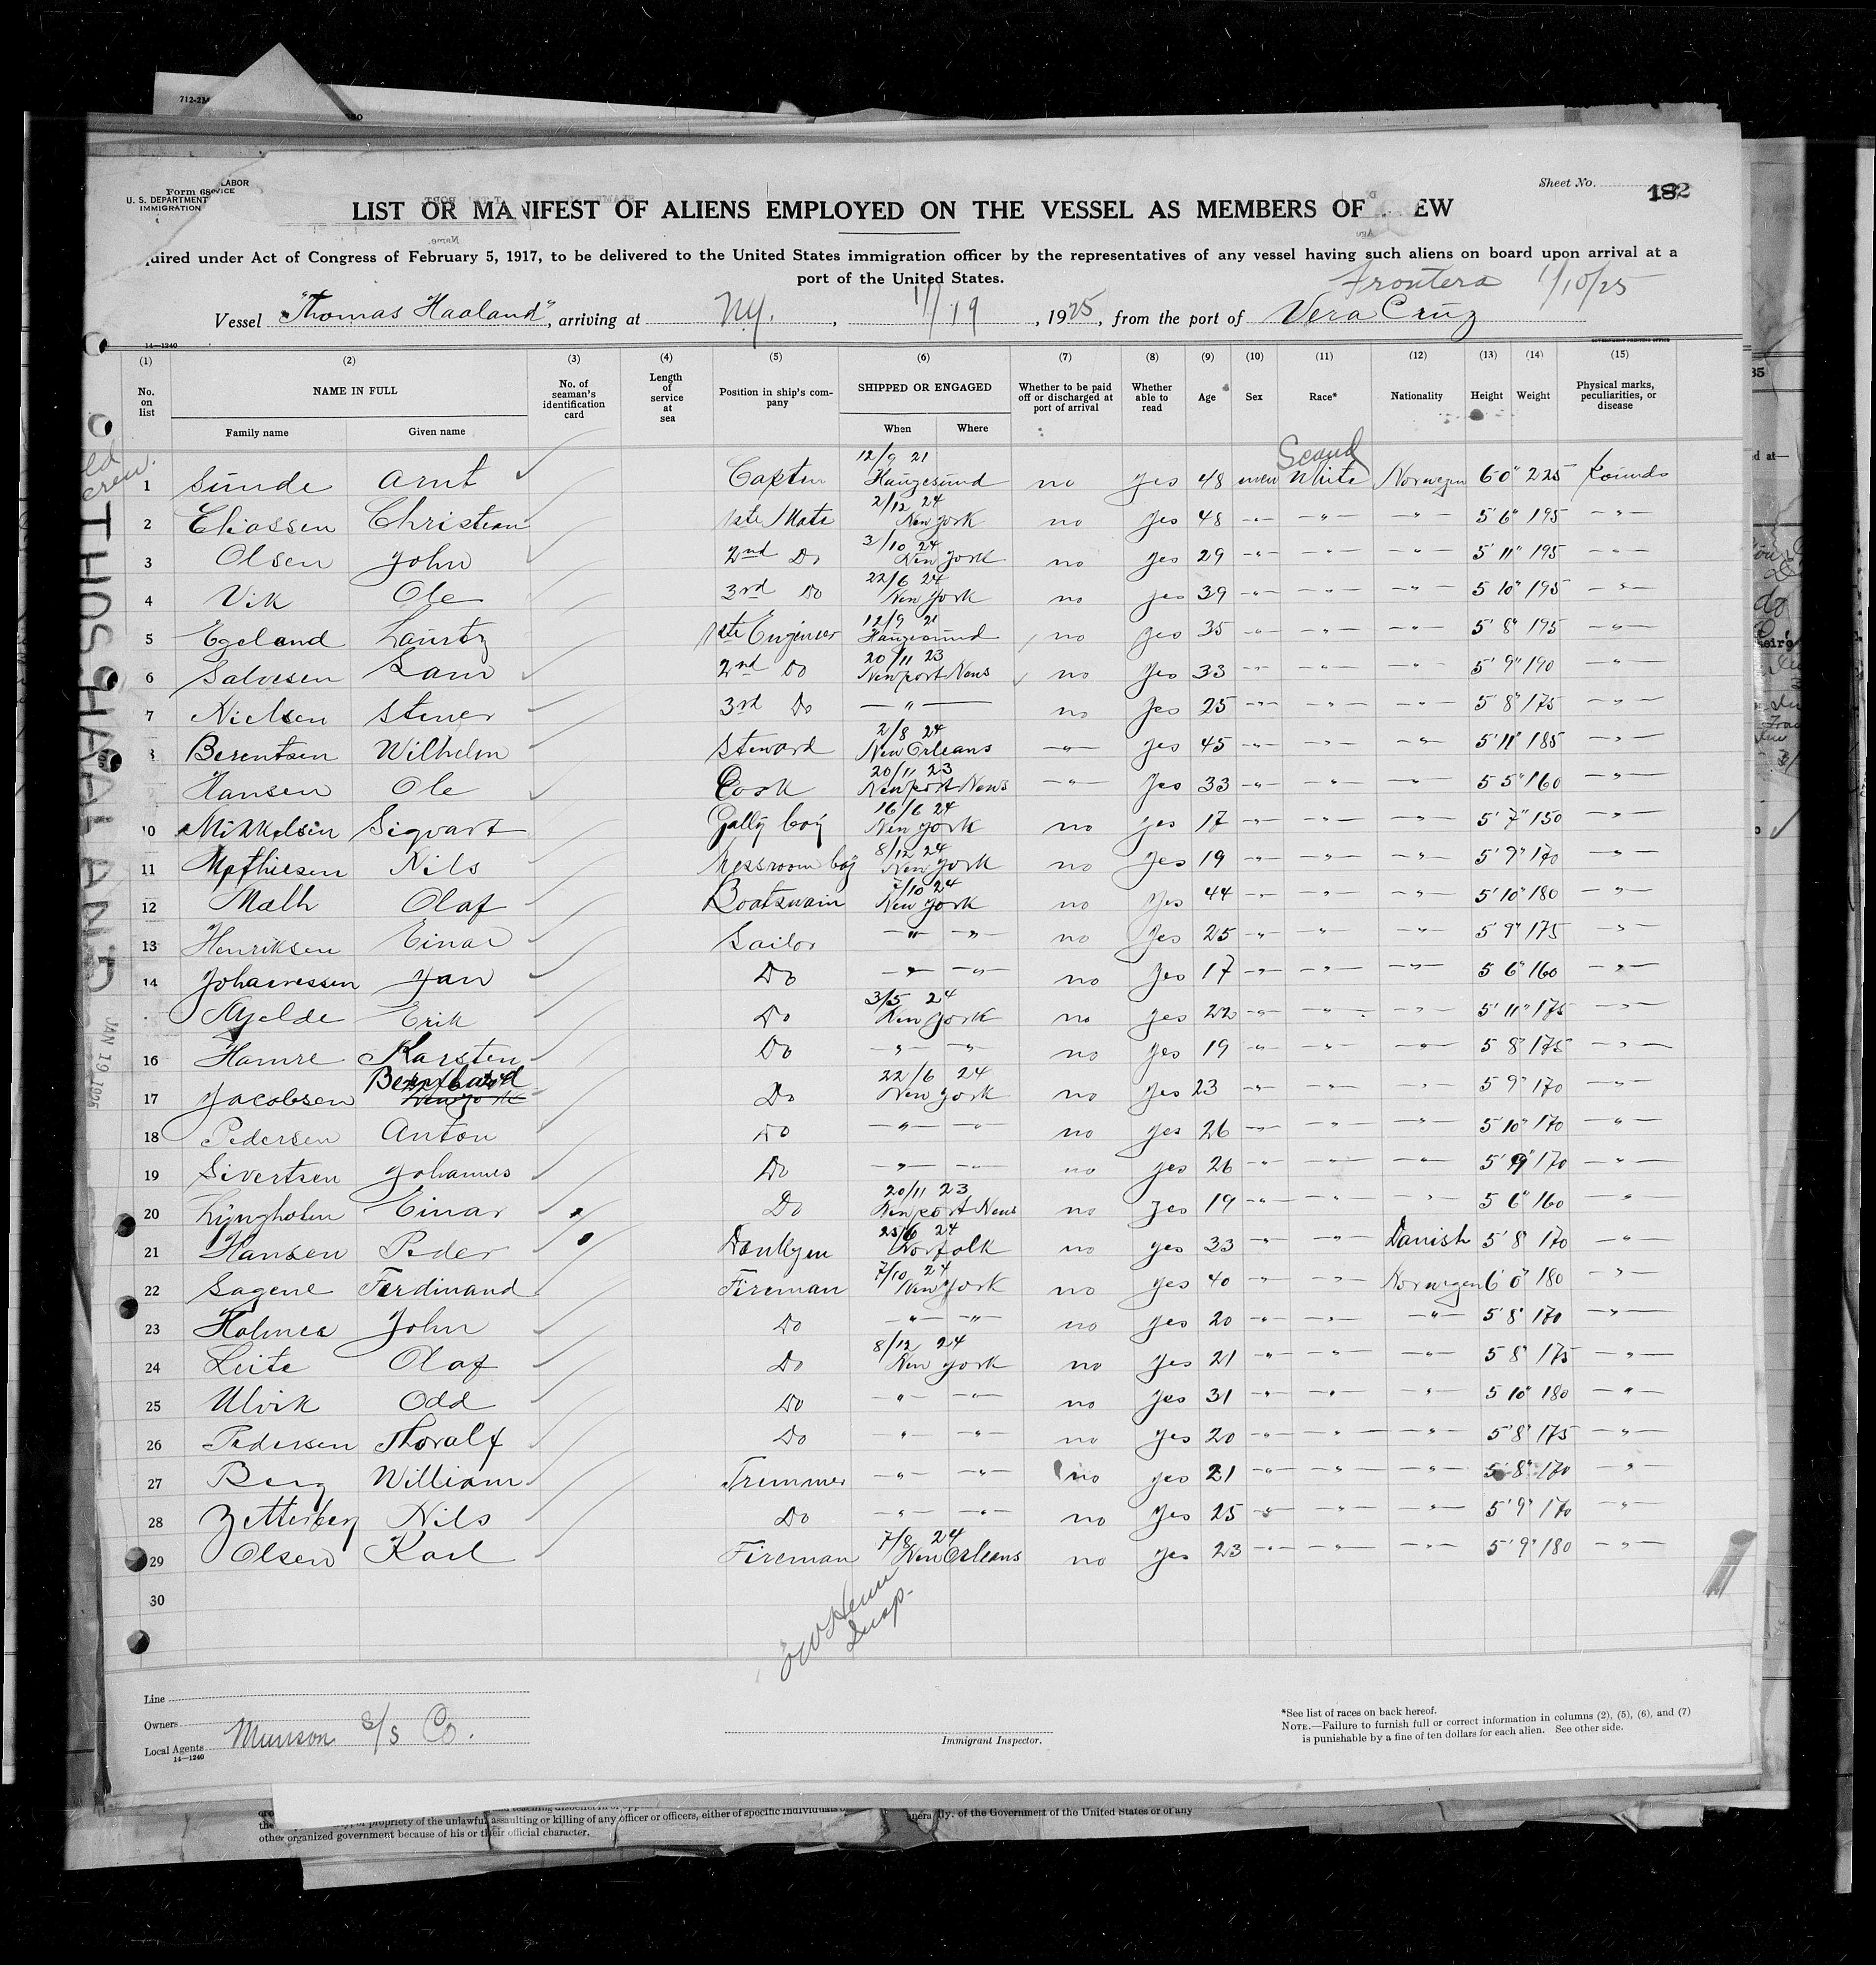 712-2M
Form 680
LABOR
U. S. DEPARTMENT
VICE
IMMIGRATION
Sheet No.
182
LIST OR MANIFEST OF ALIENS EMPLOYED ON THE VESSEL AS MEMBERS OF EW
uired under Act of Congress of February 5, 1917, to be delivered to the United States immigration officer by the representatives of any vessel having such aliens on board upon arrival at a
port of the United States.
Frontera 1/10/25
Vessel "Thomas Haaland", arriving at N.Y. , 1/19 , 1925, from the port of Vera Cruz
14—1240
GOVERNMENT PRINTING OFFICE
(1) (2) (3) (4) (5) (6) (7) (8) (9) (10) (11) (12) (13) (14) (15)
No. on list NAME IN FULL No. of seaman's identification card Length of service at sea Position in ship's company SHIPPED OR ENGAGED Whether to be paid off or discharged at port of arrival Whether able to read Age Sex Race* Nationality Height Weight Physical marks, peculiarities, or disease
Family name Given name When Where
THOS HAALAND JAN 19 1925
crew.
12/9 21 Scand
1 Sunde Arnt Capten Haugesund no yes 48 White Norwegen 6 0" 225 Pounds
2/12 24
2 Eliassen Christean 1ste Mate New York no yes 48 -"- -"- -"- 5' 6" 195 -"-
3/10 24
3 Olsen John 2nd Do New York no yes 29 -"- -"- -"- 5' 11" 195 -"-
22/6 24
4 Vik Ole 3rd Do New York no yes 39 -"- -"- -"- 5 10" 195 -"-
12/9 21
5 Egeland Lauritz 1ste Engineer Haugesund no yes 35 -"- -"- -"- 5' 8" 195 -"-
20/11 23
6 Salvesen Lars 2nd Do Newport News no yes 33 -"- -"- -"- 5' 9" 190 -"-
7 Nielsen Stener 3rd Do -"- no yes 25 -"- -"- -"- 5 8" 175 -"-
2/8 24
8 Berentsen Wilhelm Steward New Orleans -"- yes 45 -"- -"- -"- 5' 11" 185 -"-
20/11 23
Hansen Ole Cook Newport News -"- yes 33 -"- -"- -"- 5 5" 160 -"-
16/6 24
10 Mikkelsen Sigvart Gally boy New York no yes 17 -"- -"- -"- 5' 7" 150 -"-
8/12 24
11 Mathiesen Nils Messroom boy New York no yes 19 -"- -"- -"- 5' 9" 170 -"-
7/10 24
12 Malh Olaf Boatswain New York no yes 44 -"- -"- -"- 5' 10" 180 -"-
13 Henriksen Einar Sailor -"- -"- no yes 25 -"- -"- -"- 5' 9" 175 -"-
14 Johannessen Jan Do -"- -"- no yes 17 -"- -"- -"- 5 6" 160 -"-
3/5 24
Mjelde Erik Do New York no yes 22 -"- -"- -"- 5' 11" 175 -"-
16 Hamre Karsten Do -"- -"- no yes 19 -"- -"- -"- 5 8" 175 -"-
Bernthard 22/6 24
17 Jacobsen Do New York no yes 23 -"- -"- -"- 5 9" 170 -"-
18 Pedersen Anton Do -"- -"- no yes 26 -"- -"- -"- 5 10" 170 -"-
19 Sivertsen Johannes Do -"- -"- no yes 26 -"- -"- -"- 5' 9" 170 -"-
20/11 23
20 Lyngholm Einar Do Newport News no yes 19 -"- -"- -"- 5 6" 160 -"-
25/6 24
21 Hansen Peder Donkyen Norfolk no yes 33 -"- -"- Danish 5' 8" 170 -"-
7/10 24
22 Sagene Ferdinand Fireman New York no yes 40 -"- -"- Norwegen 6' 0" 180 -"-
23 Holmes John Do -"- -"- no yes 20 -"- -"- -"- 5' 8" 170 -"-
8/12 24
24 Leite Olaf Do New York no yes 21 -"- -"- -"- 5 8" 175 -"-
25 Ulvik Odd Do -"- -"- no yes 31 -"- -"- -"- 5 10" 180 -"-
26 Pedersen Thoralf Do -"- -"- no yes 20 -"- -"- -"- 5' 8" 175 -"-
27 Berg William Tremmer -"- -"- no yes 21 -"- -"- -"- 5' 8" 170 -"-
28 Zetterberg Nils Do -"- -"- no yes 25 -"- -"- -"- 5' 9" 170 -"-
7/8 24
29 Olsen Karl Fireman New Orleans no yes 23 -"- -"- -"- 5' 9" 180 -"-
30
Insp.
Line
Owners
Local Agents Munson S/S Co.
14—1240
Immigrant Inspector.
*See list of races on back hereof.
NOTE.—Failure to furnish full or correct information in columns (2), (5), (6), and (7)
is punishable by a fine of ten dollars for each alien. See other side.
propriety of the unlawful assaulting or killing of any officer or officers, either of specific individuals
ly, of the Government of the United States or of any
other organized government because of his or their official character.